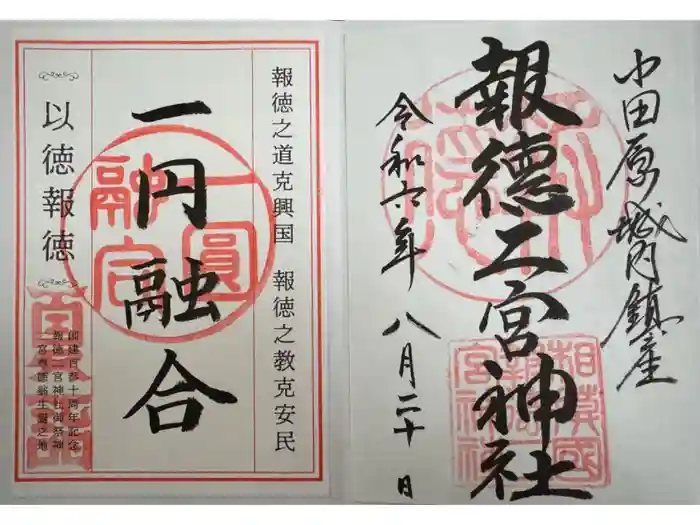 小田原城内鎮座
報徳二宮神社
令和六年 八月二十日
相模國
報徳二
宮神社
報徳之道克興国 報徳之教克安民
一円融合
一圓
融合
以徳報徳
創建百参十周年記念
報徳二宮神社御祭神
二宮尊徳翁生誕之地